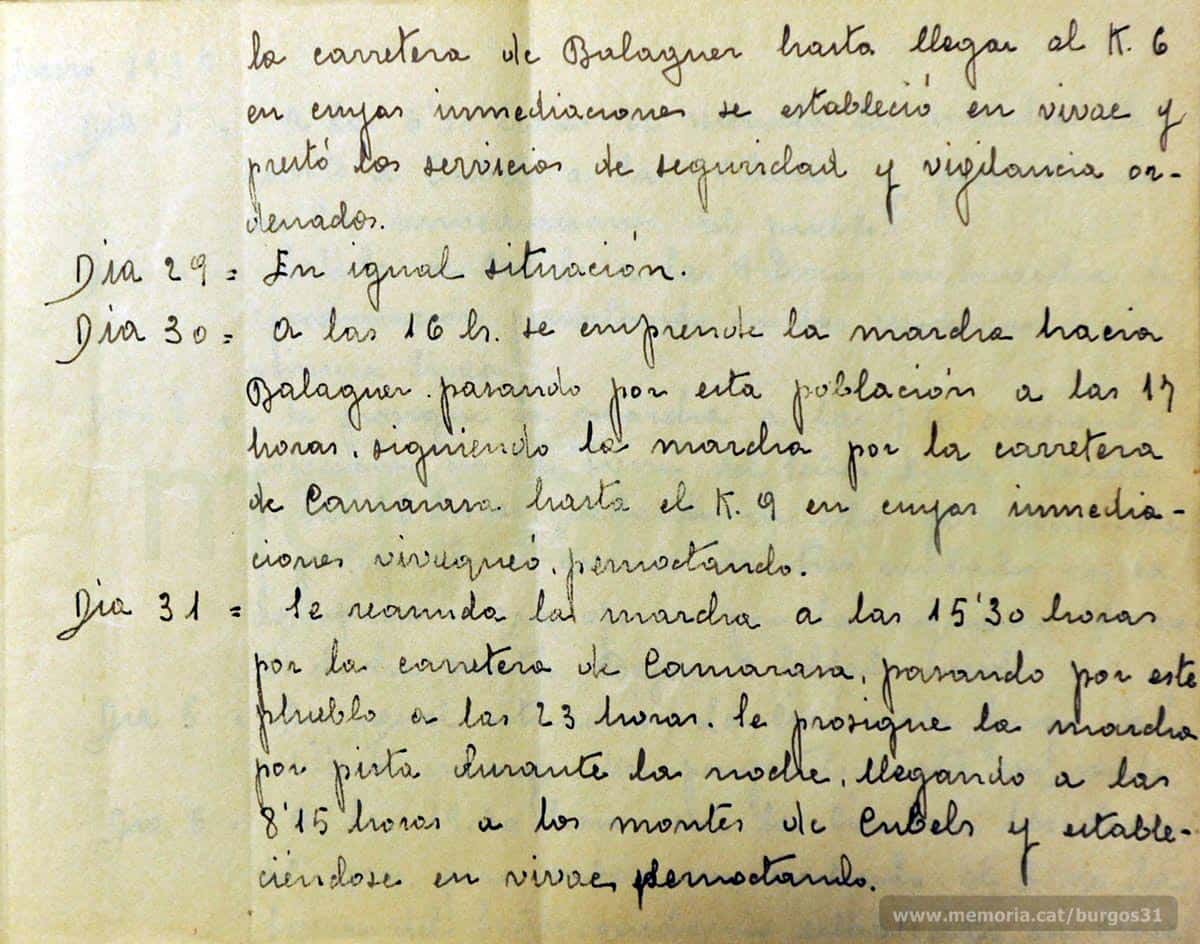 la carretera de Balaguer hasta llegar al K. 6
en cuyas inmediaciones se estableció en vivac y
prestó los servicios de seguridad y vigilancia or-
denados.
Dia 29 = En igual situación.
Dia 30 = a las 16 hs. se emprende la marcha hacia
Balaguer. pasando por esta población a las 17
horas. siguiendo la marcha por la carretera
de Camarasa hasta el K. 9 en cuyas inmedia-
ciones vivaqueó, pernoctando.
Dia 31 = Se reanuda la marcha a las 15'30 horas
por la carretera de Camarasa, pasando por este
phueblo a las 23 horas. Se prosigue la marcha
por pista durante la noche, llegando a las
8'15 horas a los montes de Cubels y estable-
ciéndose en vivac pernoctando.
www.memoria.cat/burgos31